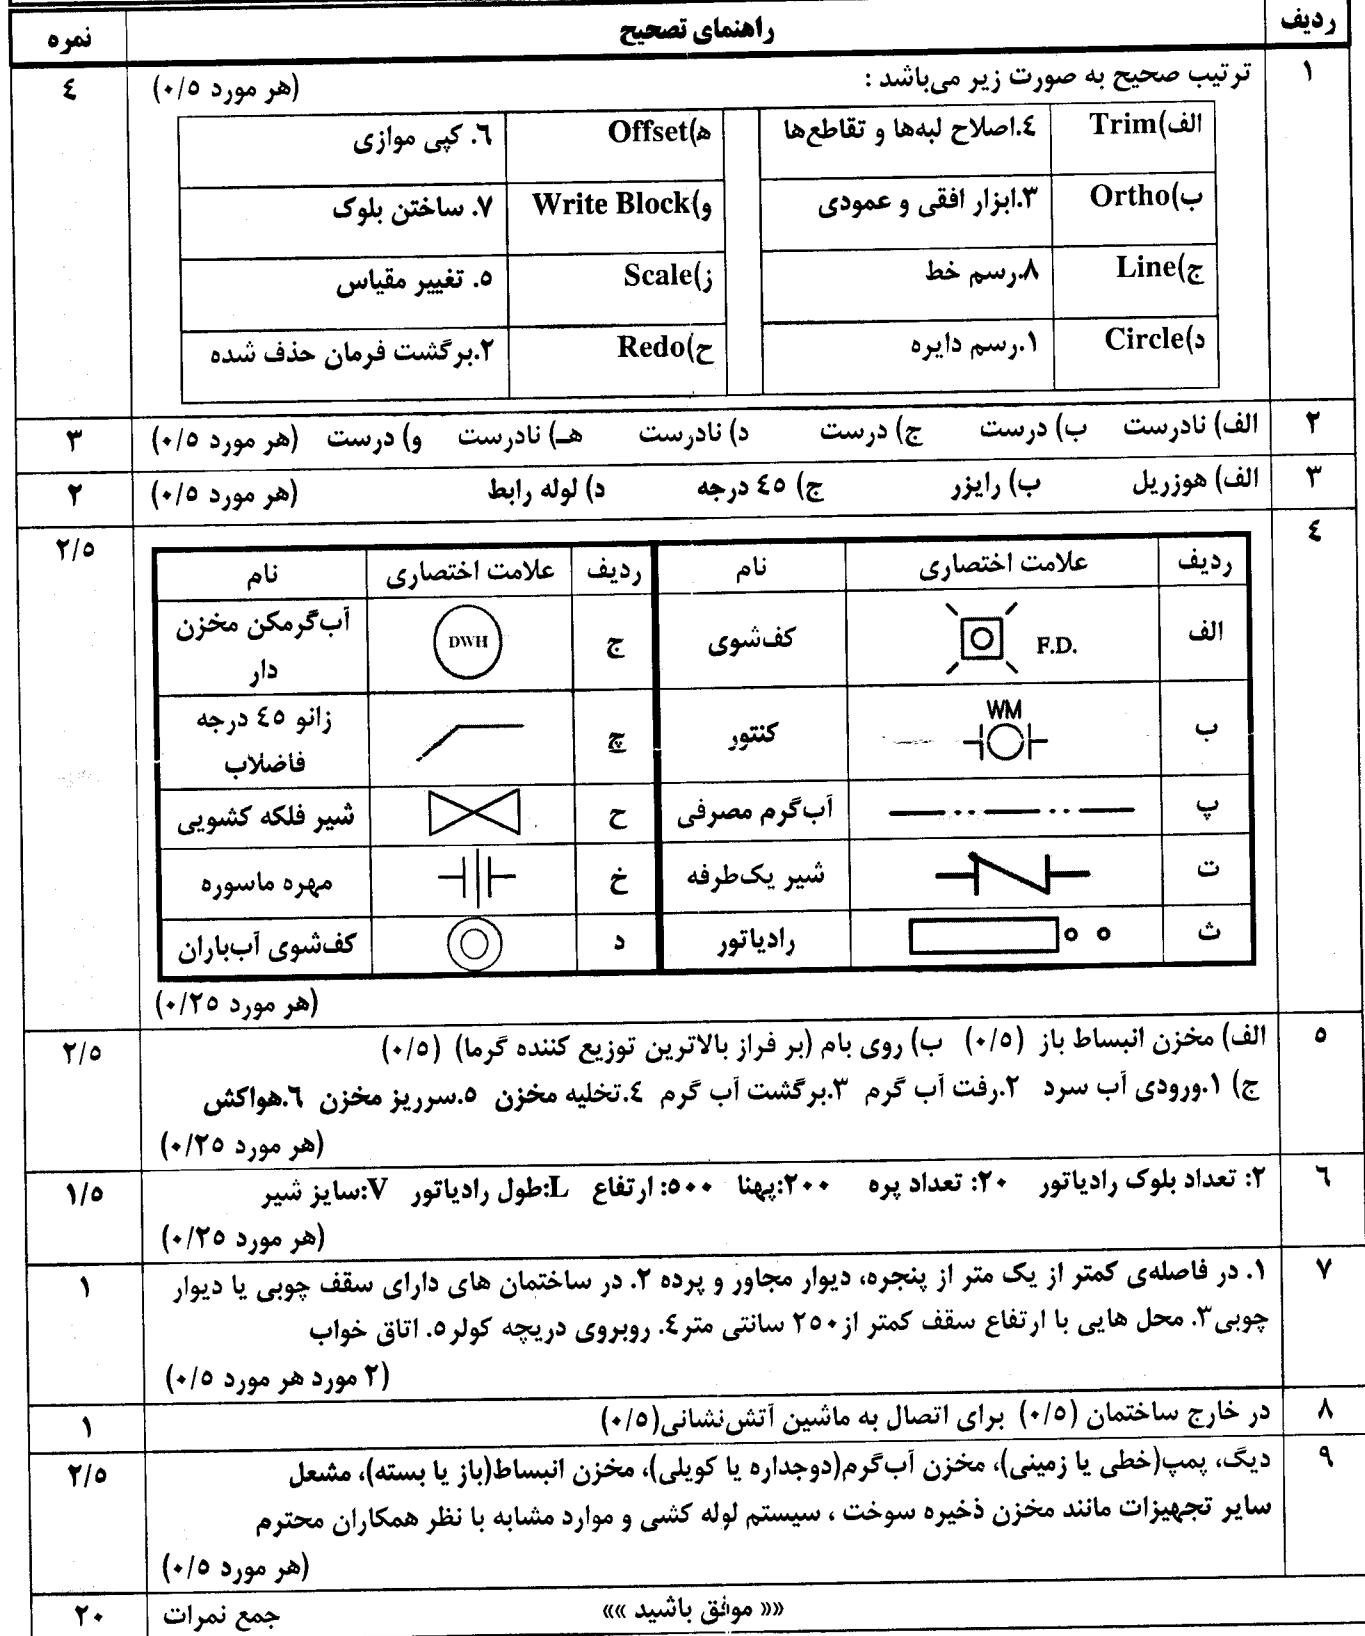 ردیف راهنمای تصحیح نمره
۱ ترتیب صحیح به صورت زیر می‌باشد : (هر مورد ۰/۵) ٤
الف)Trim ٤.اصلاح لبه‌ها و تقاطع‌ها ه)Offset ٦. کپی موازی
ب)Ortho ۳.ابزار افقی و عمودی و)Write Block ۷. ساختن بلوک
ج)Line ۸.رسم خط ز)Scale ٥. تغییر مقیاس
د)Circle ۱.رسم دایره ح)Redo ۲.برگشت فرمان حذف شده
۲ الف) نادرست ب) درست ج) درست د) نادرست هـ) نادرست و) درست (هر مورد ۰/۵) ۳
۳ الف) هوزریل ب) رایزر ج) ٤٥ درجه د) لوله رابط (هر مورد ۰/۵) ۲
٤ ۲/۵
ردیف علامت اختصاری نام ردیف علامت اختصاری نام
الف F.D. کف‌شوی ج DWH آب‌گرمکن مخزن
دار
ب WM کنتور چ زانو ٤٥ درجه
فاضلاب
پ آب‌گرم مصرفی ح شیر فلکه کشویی
ت شیر یک‌طرفه خ مهره ماسوره
ث رادیاتور د کف‌شوی آب‌باران
(هر مورد ۰/۲۵)
٥ الف) مخزن انبساط باز (۰/۵) ب) روی بام (بر فراز بالاترین توزیع کننده گرما) (۰/۵) ۲/۵
ج) ۱.ورودی آب سرد ۲.رفت آب گرم ۳.برگشت آب گرم ٤.تخلیه مخزن ٥.سرریز مخزن ٦.هواکش
(هر مورد ۰/۲۵)
٦ ۲: تعداد بلوک رادیاتور ۲۰: تعداد پره ۲۰۰:پهنا ٥۰۰: ارتفاع L:طول رادیاتور V:سایز شیر ۱/۵
(هر مورد ۰/۲۵)
۷ ۱. در فاصله‌ی کمتر از یک متر از پنجره، دیوار مجاور و پرده ۲. در ساختمان های دارای سقف چوبی یا دیوار ۱
چوبی۳. محل هایی با ارتفاع سقف کمتر از۲۵۰ سانتی متر٤. روبروی دریچه کولر٥. اتاق خواب
(۲ مورد هر مورد ۰/۵)
۸ در خارج ساختمان (۰/۵) برای اتصال به ماشین آتش‌نشانی(۰/۵) ۱
۹ دیگ، پمپ(خطی یا زمینی)، مخزن آب‌گرم(دوجداره یا کویلی)، مخزن انبساط(باز یا بسته)، مشعل ۲/۵
سایر تجهیزات مانند مخزن ذخیره سوخت ، سیستم لوله کشی و موارد مشابه با نظر همکاران محترم
(هر مورد ۰/۵)
«« موفق باشید »» جمع نمرات ۲۰